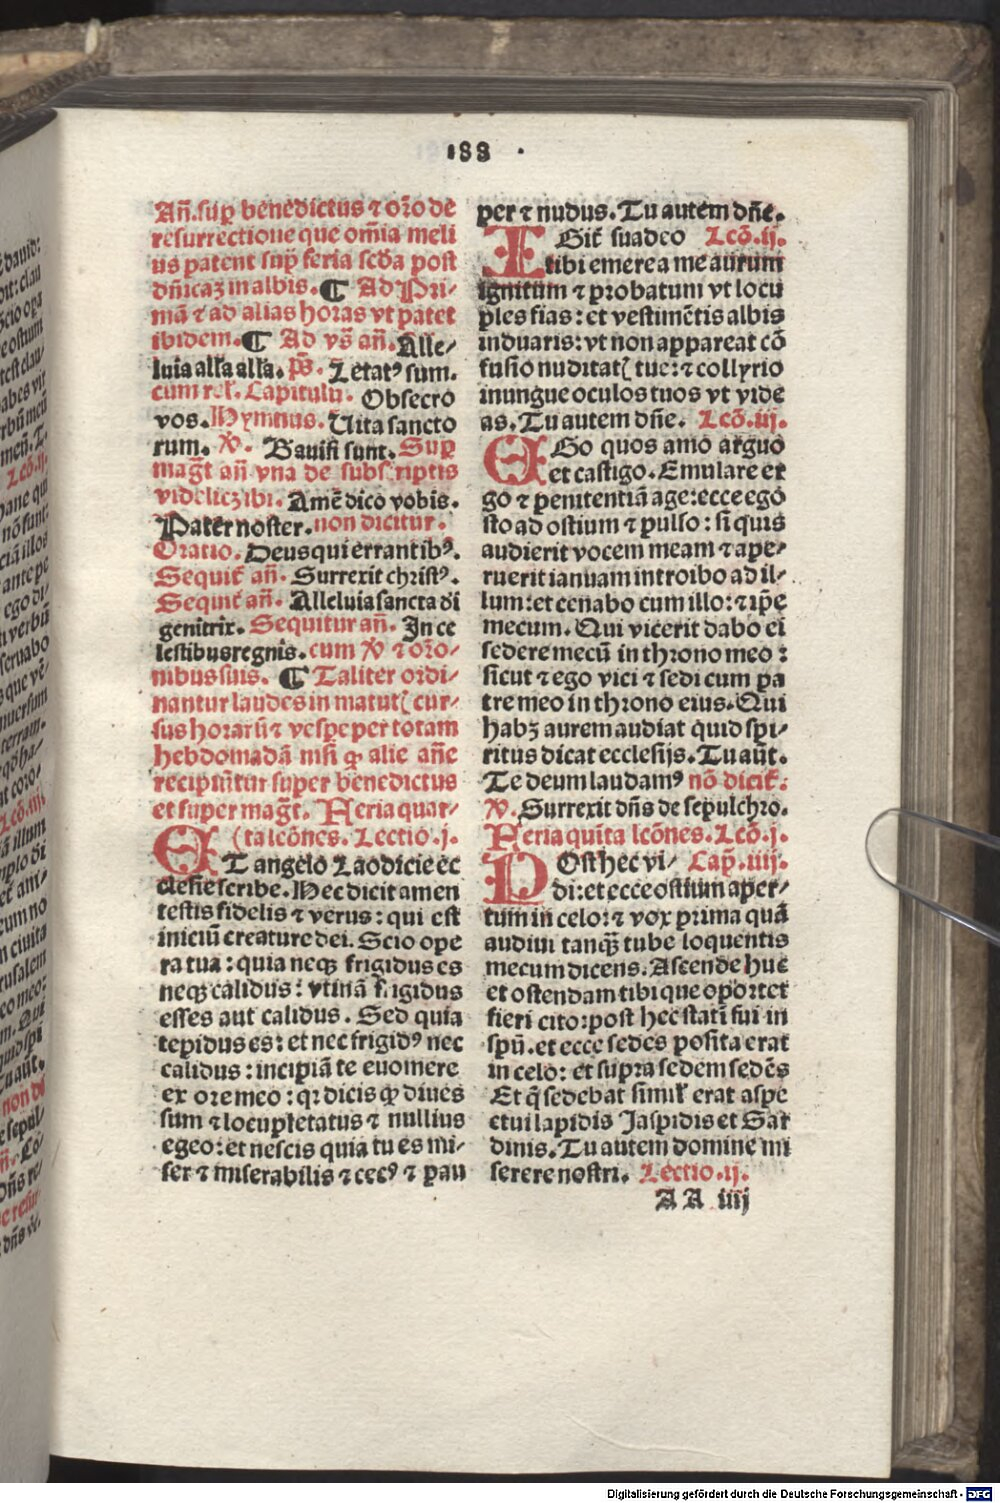 188 .
Añ. sup benedictus ⁊ oro de
resurrectione que omĩa meli
us patent sup feria scďa post
dñicaz in albis. ¶ Ad Pri-
mã ⁊ ad alias horas vt patet
ibidem. ¶ Ad vs̃ añ. Alle/
luia alľa alľa. ps̃. Letatꝰ sum.
cum rel. Capitulũ. Obsecro
vos. Hymnus. Uita sancto
rum. ꝟ. Gavisi sunt. Sup
magt̃ añ vna de subscriptis
videliczibi. Amẽ dico vobis.
Pater noster. non dicitur.
Oratio. Deus qui errantibꝰ.
Sequit̃ añ. Surrexit christꝰ.
Sequit̃ añ. Alleluia sancta di
genitrix. Sequitur añ. In ce
lestibus regnis. cum ꝟ ⁊ oro/
nibus suis. ¶ Taliter ordi/
nantur laudes in matut̃ cur/
sus horarũ ⁊ vespe per totam
hebdomadã nisi ꝙ alie añe
recipiũtur super benedictus
et super magt̃. Feria quar/
(ta lcõnes. Lectio .j.
ET angelo Laodicie ec
clesie scribe. Hec dicit amen
testis fidelis ⁊ verus: qui est
iniciũ creature dei. Scio ope
ra tua: quia neqꝫ frigidus es
neqꝫ calidus: vtinã frigidus
esses aut calidus. Sed quia
tepidus es: et nec frigidꝰ nec
calidus: incipiã te euomere
ex ore meo: qꝛ dicis ꝙ diues
sum ⁊ locupletatus ⁊ nullius
egeo: et nescis quia tu es mi-
ser ⁊ miserabilis ⁊ cecꝰ ⁊ pau
per ⁊ nudus. Tu autem dñe.
EGit̃ suadeo Lcõ.ij.
tibi emere a me aurum
ignitum ⁊ probatum vt locu
ples fias: et vestimẽtis albis
induaris: vt non appareat cõ
fusio nuditat̃ tue: ⁊ collyrio
inungue oculos tuos vt vide
as. Tu autem dñe. Lcõ.iij.
EGo quos amo arguo
et castigo. Emulare er
go ⁊ penitentiã age: ecce ego
sto ad ostium ⁊ pulso: si quis
audierit vocem meam ⁊ ape/
ruerit ianuam introibo ad il/
lum: et cenabo cum illo: ⁊ ip̃e
mecum. Qui vicerit dabo ei
sedere mecũ in throno meo:
sicut ⁊ ego vici ⁊ sedi cum pa
tre meo in throno eius. Qui
habꝫ aurem audiat quid spi/
ritus dicat ecclesijs. Tu aũt.
Te deum laudamꝰ nõ dicit̃:
ꝟ. Surrexit dñs de sepulchro.
Feria quĩta lcõnes. Lcõ.j.
POst hec vi/ Cap̃.iiij.
di: et ecce ostium aper/
tum in celo: ⁊ vox prima quã
audiui tanqꝫ tube loquentis
mecum dicens. Ascende huc
et ostendam tibi que oportet
fieri cito: post hec statĩ fui in
spũ. et ecce sedes posita erat
in celo: et supra sedem sedẽs
Et q̃ sedebat simiľ erat aspe
ctui lapidis Jaspidis et Sar
dinis. Tu autem domine mi
serere nostri. Lectio.ij.
AA iiij
Digitalisierung gefördert durch die Deutsche Forschungsgemeinschaft - DFG